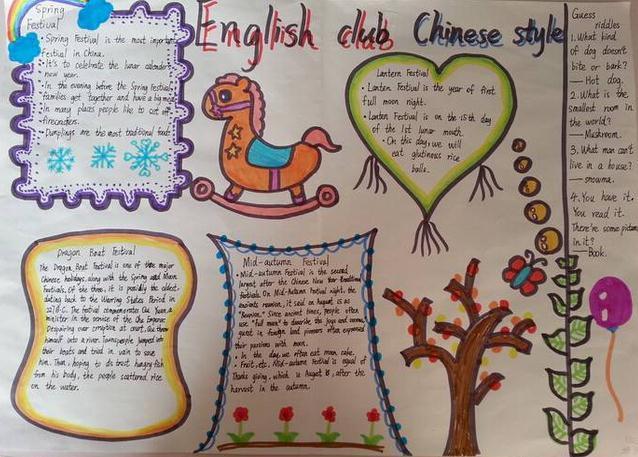 English club Chinese style
Spring
Festival
· Spring Festival is the most important
Festival in China.
· It's to celebrate the lunar calendar
new year.
· In the evening before the Spring Festival
families get together and have a big meal
· In many places people like to set off
firecrackers.
· Dumplings are the most traditional food
Lantern Festival
· Lantern Festival is the year of first
full moon night.
· Lantern Festival is on the 15th day
of the 1st lunar mouth.
· On this day, we will
eat glutinous rice
balls.
Guess
riddles
1. What kind
of dog doesn't
bite or bark?
— Hot dog.
2. What is the
smallest room in
the world?
— Mushroom.
3. What man can't
live in a house?
— snowman.
4. You have it.
You read it.
There're some pictures
in it?
— Book.
Dragon Boat Festival
The Dragon Boat Festival is one of three major
Chinese holidays, along with the Spring and Moon
Festivals. Of the three, it is possibly the oldest,
dating back to the Warring States Period in
227 B.C. The festival commemorates Qu Yuan, a
minister in the service of the Chu Emperor.
Despairing over corruption at court, Qu threw
himself into a river. Townspeople jumped into
their boats and tried in vain to save
him. Then, hoping to distract hungry fish
from his body, the people scattered rice
on the water.
Mid-autumn Festival
· Mid-autumn Festival is the second
largest after the Chinese New Year
festivals. On Mid-Autumn Festival night the
ancients reunion, it said on August 15 as
"Reunion." Since ancient times, people often
use "full moon" to describe the joys and sorrows,
guest in foreign land pioneers often expressed
their passions with moon.
· In the day, we often eat moon cake.
· Fruit, etc. Mid-autumn Festival is equal of
Thanks giving, which is August 15, after the
harvest in the autumn.